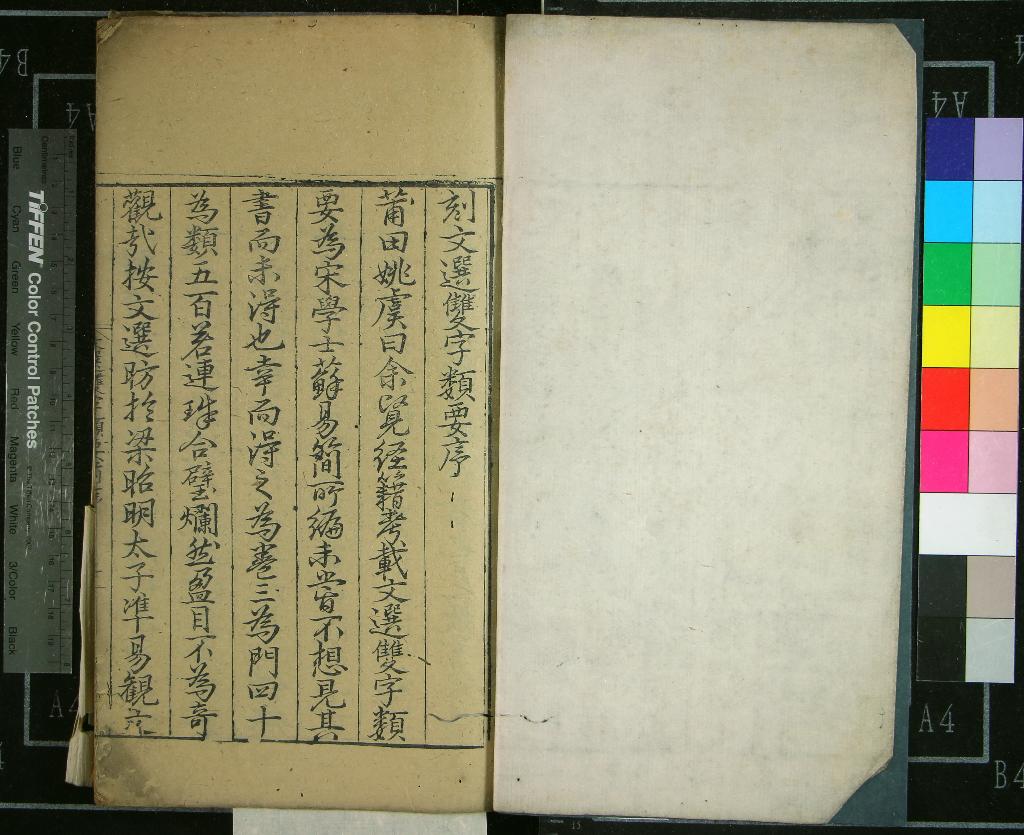 刻文選雙字類要序
莆田姚虞曰余覽經籍考載文選雙字類
要為宋學士蘇易簡所編未嘗不想見其
書而未得也幸而得之為卷三為門四十
為類五百若連珠合璧爛然盈目不為奇
觀哉按文選昉於梁昭明太子準易觀
TIFFEN Color Control Patches
Blue Cyan Green Yellow Red Magenta White 3/Color Black
Centimetres
A4
A4
A4
A4
B4
B4